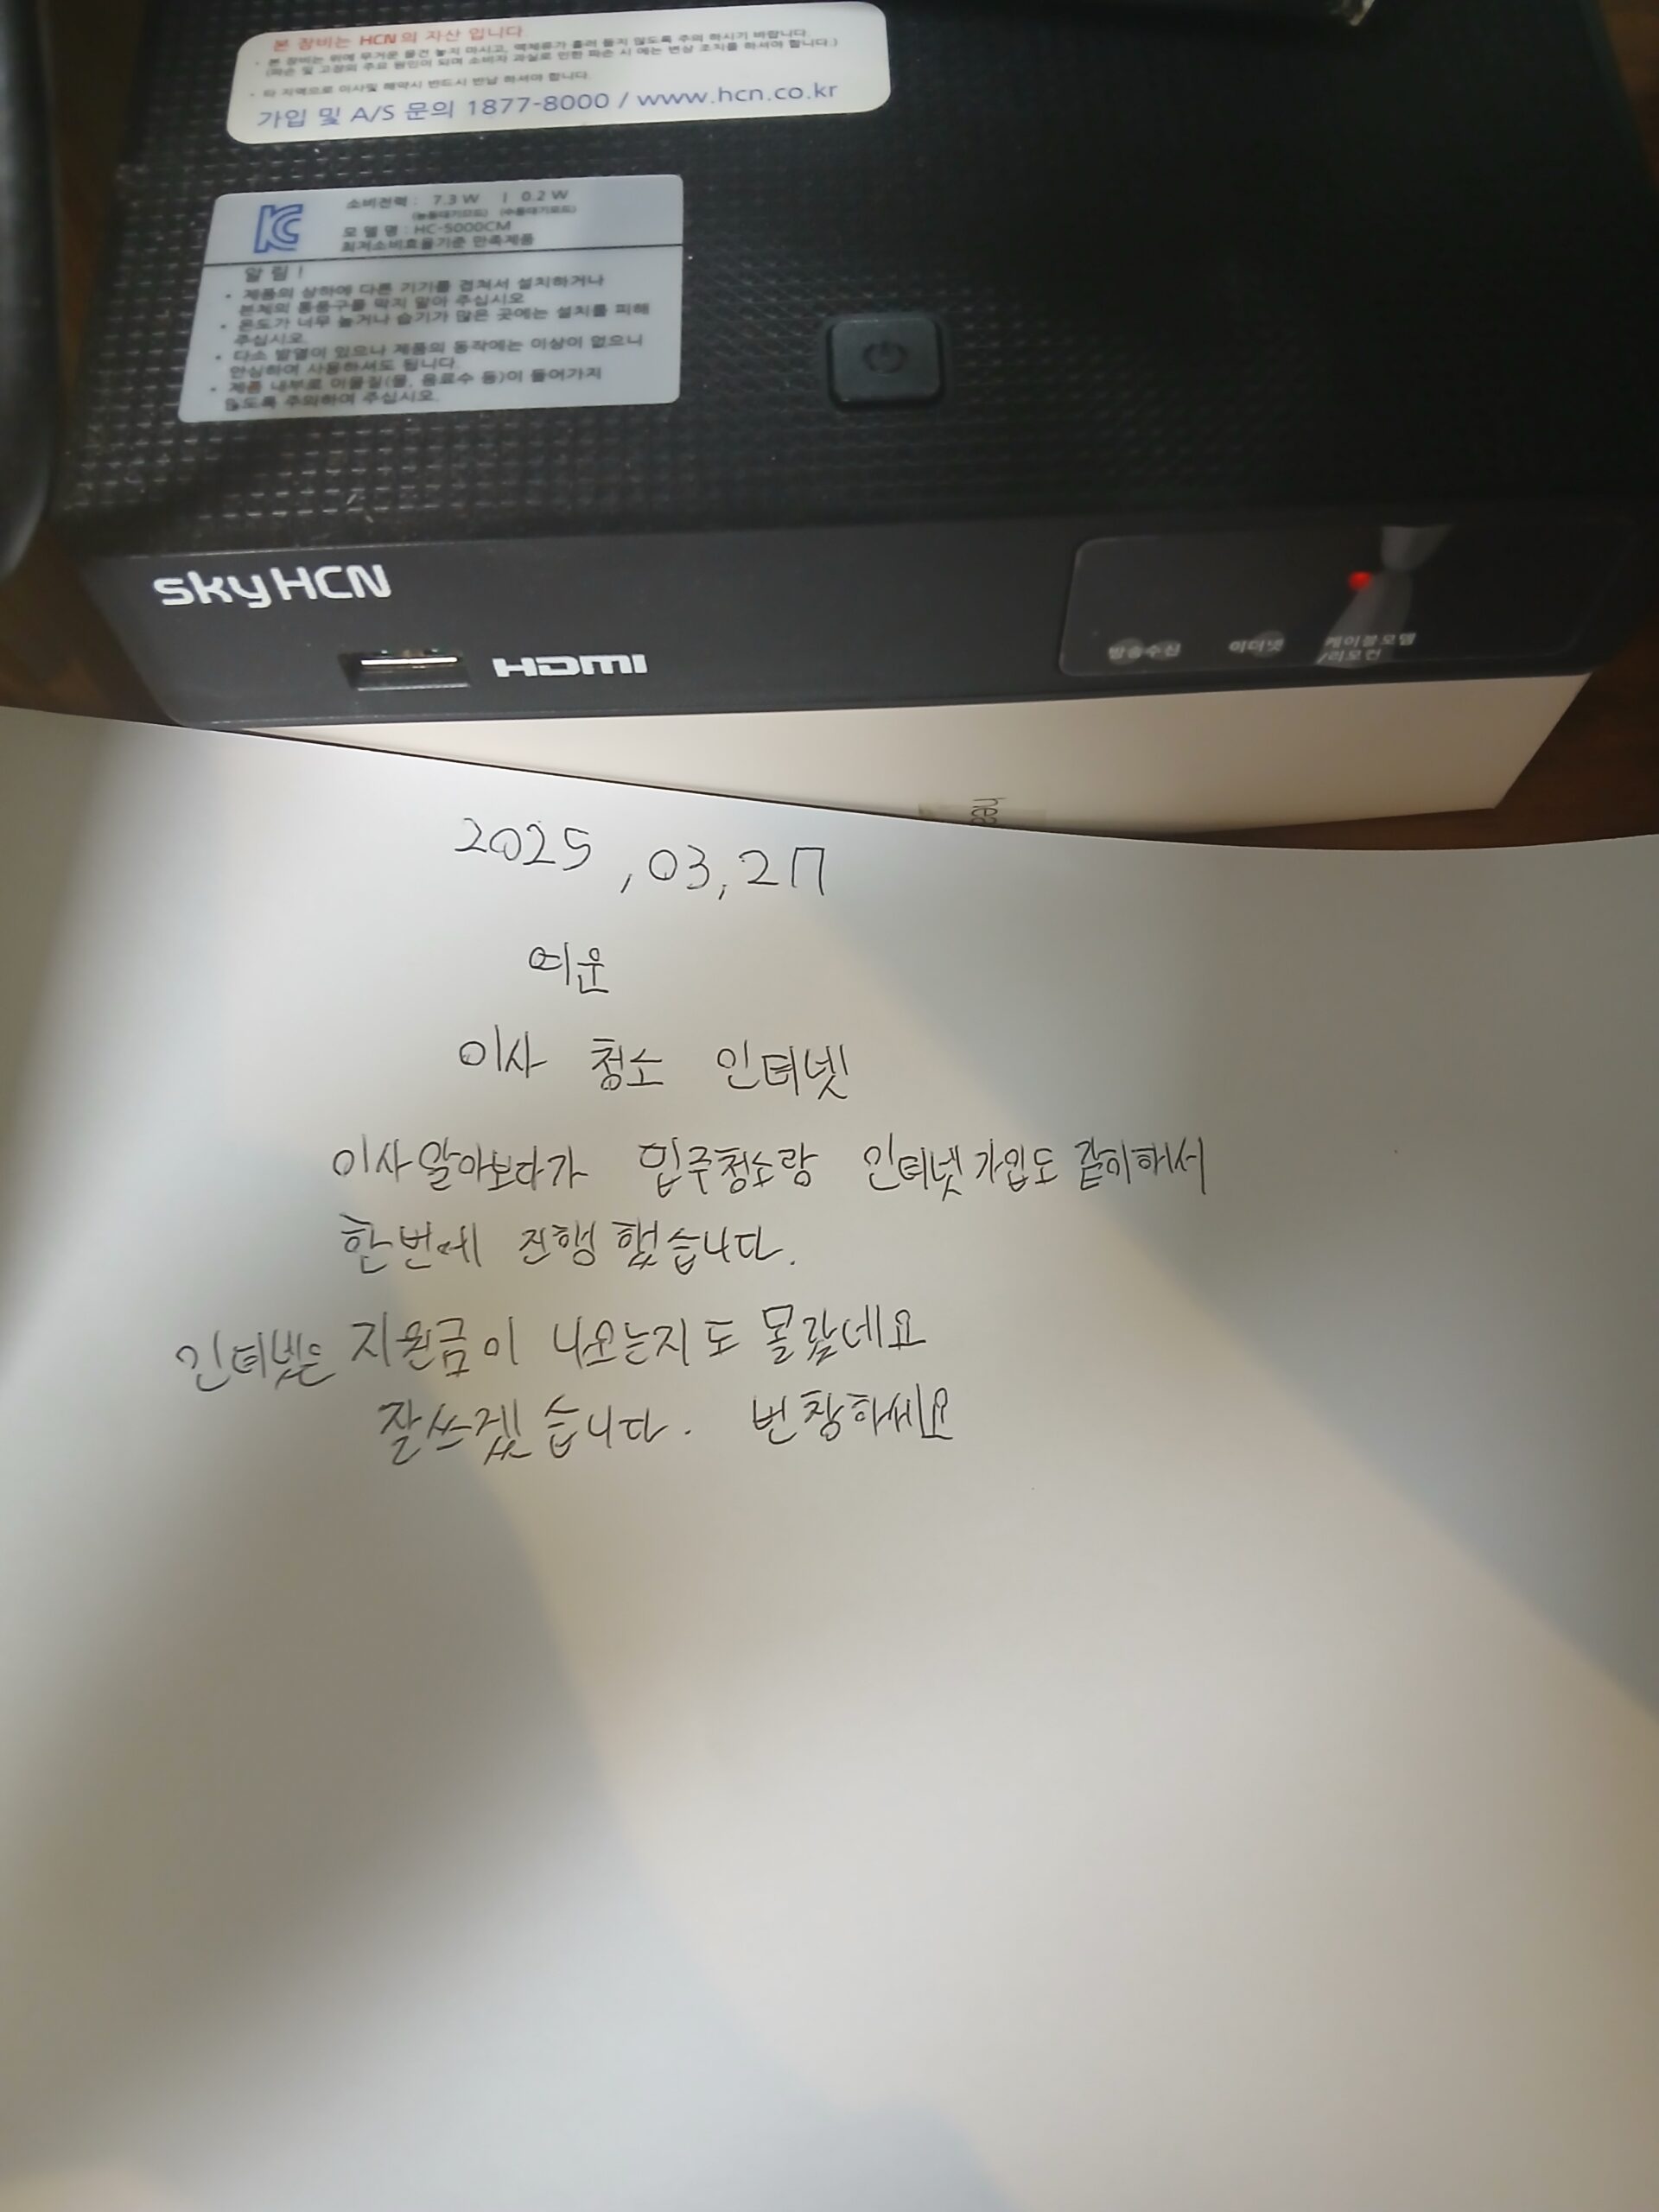 본 장비는 HCN의 자산 입니다
• 본 장비는 위에 무거운 물건 놓지 마시고, 액체류가 흘러 들지 않도록 주의 하시기 바랍니다.
(파손 및 고장의 주요 원인이 되며 소비자 과실로 인한 파손 시 에는 변상 조치를 하셔야 합니다.)
• 타 지역으로 이사및 해약시 반드시 반납 하셔야 합니다.
가입 및 A/S 문의 1877-8000 / www.hcn.co.kr
소비전력 : 7.3 W | 0.2 W
(능동대기모드) (수동대기모드)
모 델 명 : HC-5000CM
최저소비효율기준 만족제품
알 림 !
• 제품의 상하에 다른 기기를 겹쳐서 설치하거나
본체의 통풍구를 막지 말아 주십시오
• 온도가 너무 높거나 습기가 많은 곳에는 설치를 피해
주십시오.
• 다소 발열이 있으나 제품의 동작에는 이상이 없으니
안심하여 사용하셔도 됩니다.
• 제품 내부로 이물질(물, 음료수 등)이 들어가지
않도록 주의하여 주십시오.
skyHCN
HDMI
방송수신 이더넷 케이블모뎀
/리모컨
hea
2025,03,27
여운
이사 청소 인터넷
이사알아보다가 입주청소랑 인터넷가입도 같이해서
한번에 진행했습니다.
인터넷은 지원금이 나오는지도 몰랐네요
잘쓰겠습니다. 번창하세요